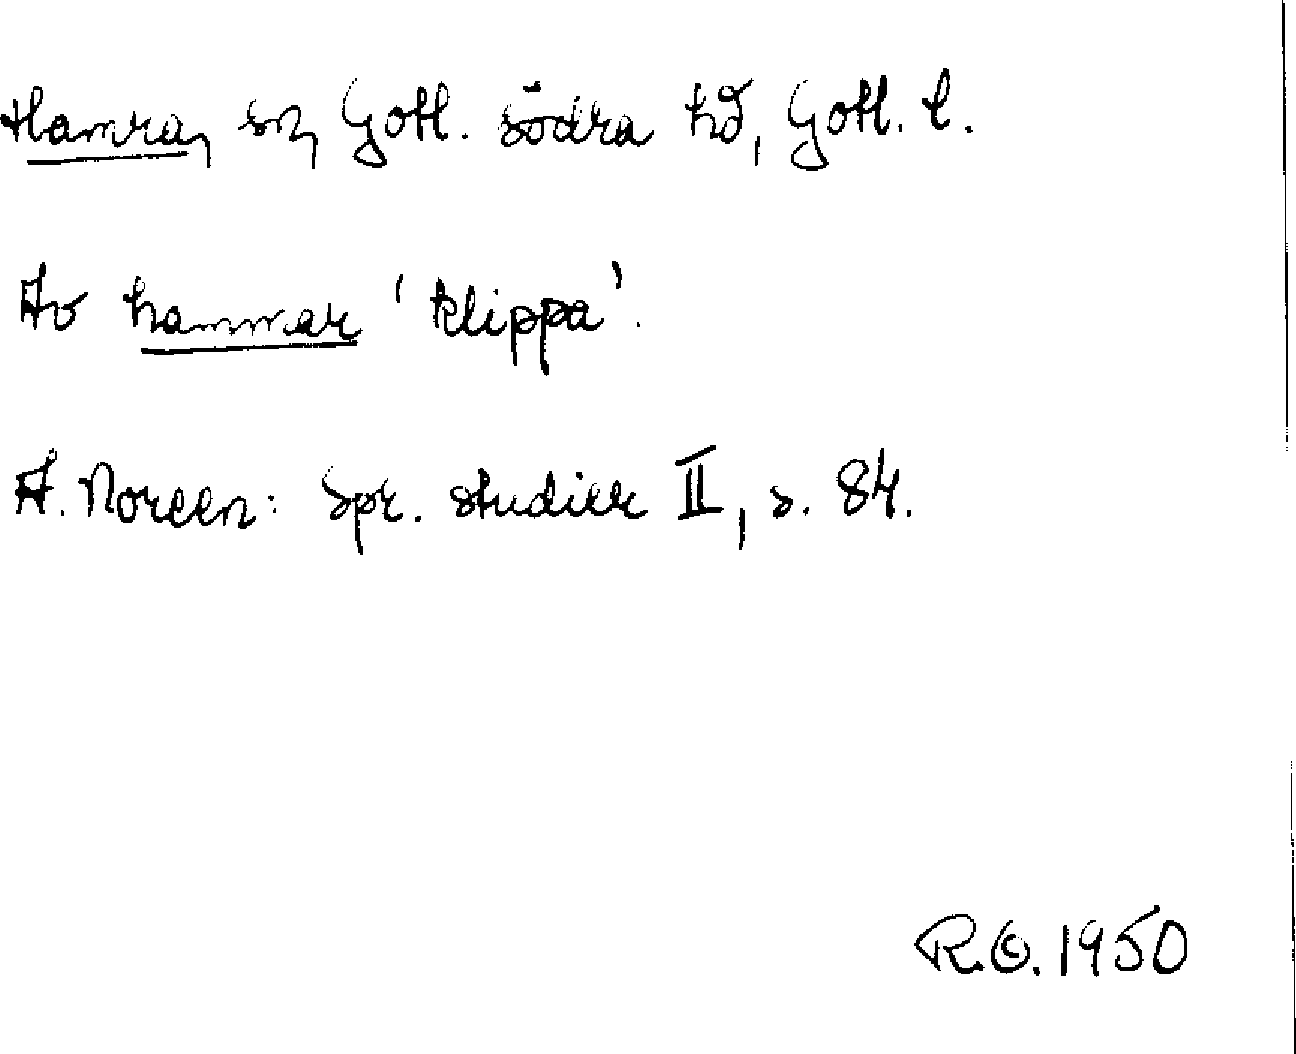 Hamra, sn, Gotl. södra hd, Gotl. l.
Av hammar 'klippa'.
A. Noreen: Spr. studier II, s. 84.
R.O. 1950